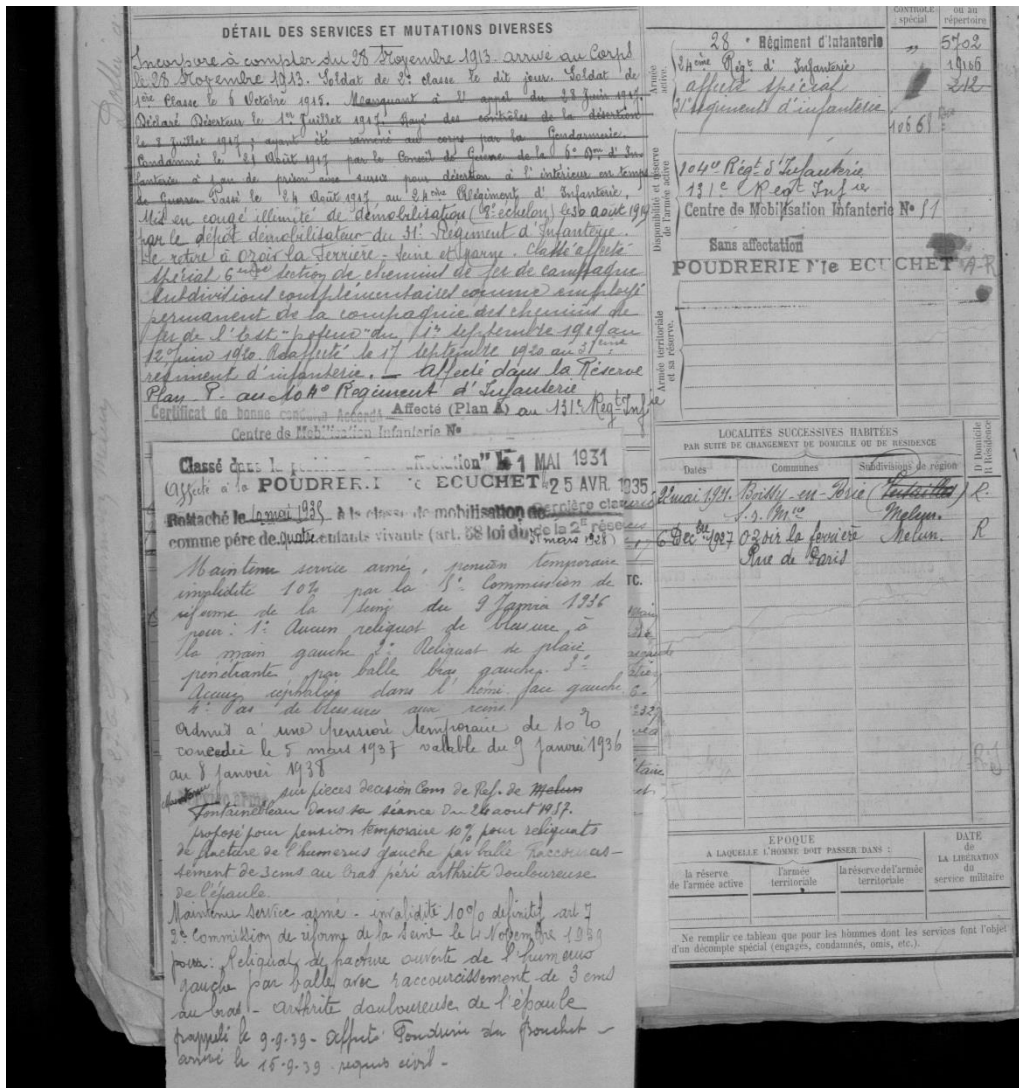 DÉTAIL DES SERVICES ET MUTATIONS DIVERSES
Incorporé à compter du 28 Novembre 1913. arrivé au Corps
le 28 Novembre 1913. Soldat de 2e classe le dit jour. Soldat de
1ère Classe le 6 Octobre 1915. Manquant à l'appel du 28 Juin 1917.
Déclaré Déserteur le 1er Juillet 1917. Rayé des contrôles de la désertion
le 8 Juillet 1917, ayant été ramené au corps par la Gendarmerie.
Condamné le 21 Août 1917 par le Conseil de Guerre de la 6e Don d'In-
fanterie à 1 an de prison avec sursis pour désertion à l'intérieur en temps
de Guerre. Passé le 24 Août 1917, au 24ème Régiment d'Infanterie.
Mis en congé illimité de démobilisation (8e échelon) le 30 août 1919
par le dépôt démobilisateur du 31e Régiment d'Infanterie.
Se retire à Ozoir la Ferrière - Seine et Marne. Classé affecté
spécial 6ème section de chemins de fer de campagne
subdivisions complémentaires comme employé
permanent de la compagnie des chemins de
fer de l'Est "poseur" du 1er septembre 1919 au
12 Juin 1920. Réaffecté le 17 septembre 1920 au 31ème
régiment d'infanterie. — Affecté dans la Réserve
Plan P. au 104e Régiment d'Infanterie
Certificat de bonne conduite Accordé Affecté (Plan A) au 131e Régt Infie
Centre de Mobilisation Infanterie No
Classé dans la affectation" le 1 MAI 1931
Affecté à la POUDRERIE BOUCHET 25 AVR 1935
Rattaché le 10 mai 1935 à la classe de mobilisation de dernière classe
comme père de quatre enfants vivants (art. 58 loi du de la 2e rése
31 mars 1928)
Maintenu service armé, pension temporaire
invalidité 10% par la Commission de
réforme de la Seine du 9 Janvier 1936
pour: 1° Aucun reliquat de blessure à
la main gauche 2° Reliquat de plaie
pénétrante par balle bras gauche. 3°
céphalées dans l'hémi face gauche
4° Pas de blessures aux reins.
admis à une pension temporaire de 10%
concédée le 5 mars 1937 valable du 9 janvier 1936
au 8 janvier 1938
Maintenu sur pièces décision Com de Ref. de Melun
Fontainebleau dans sa séance du 24 aout 1937.
proposé pour pension temporaire 10% pour reliquats
de fracture de l'humerus gauche par balle Raccourcis-
sement de 3cms au bras péri arthrite douloureuse
de l'épaule
Maintenu service armé - invalidité 10% définitif art 7
2e Commission de réforme de la Seine le 4 Novembre 1939
pour: Reliquat de fracture ouverte de l'humerus
gauche par balle avec raccourcissement de 3 cms
au bras - arthrite douloureuse de l'épaule
Rappelé le 9-9-39 - affecté Poudrerie du Bouchet -
arrivé le 15-9-39 requis civil -
CONTRÔLE
spécial
ou au
répertoire
Armée
active.
28e Régiment d'Infanterie " 5702
24ème Régt d'Infanterie 19166
affecté spécial 212
31e régiment d'infanterie
10668
Disponibilité et réserve
de l'armée active
104e Régt d'Infanterie
131e Régt Infie
Centre de Mobilisation Infanterie No 51
Sans affectation
POUDRERIE Nle BOUCHET A-R
Armée territoriale
et sa réserve.
LOCALITÉS SUCCESSIVES HABITÉES
PAR SUITE DE CHANGEMENT DE DOMICILE OU DE RÉSIDENCE
D Domicile
R Résidence
Dates Communes Subdivisions de région
22 mai 1921. Boissy-en-Brie (Versailles) R.
Melun.
6 Décbre 1927 Ozoir la ferrière Melun. R
Rue de Paris
ÉPOQUE
A LAQUELLE L'HOMME DOIT PASSER DANS :
DATE
de
LA LIBÉRATION
du
service militaire
la réserve
de l'armée active
l'armée
territoriale
la réserve de l'armée
territoriale
Ne remplir ce tableau que pour les hommes dont les services font l'objet
d'un décompte spécial (engagés, condamnés, omis, etc.).